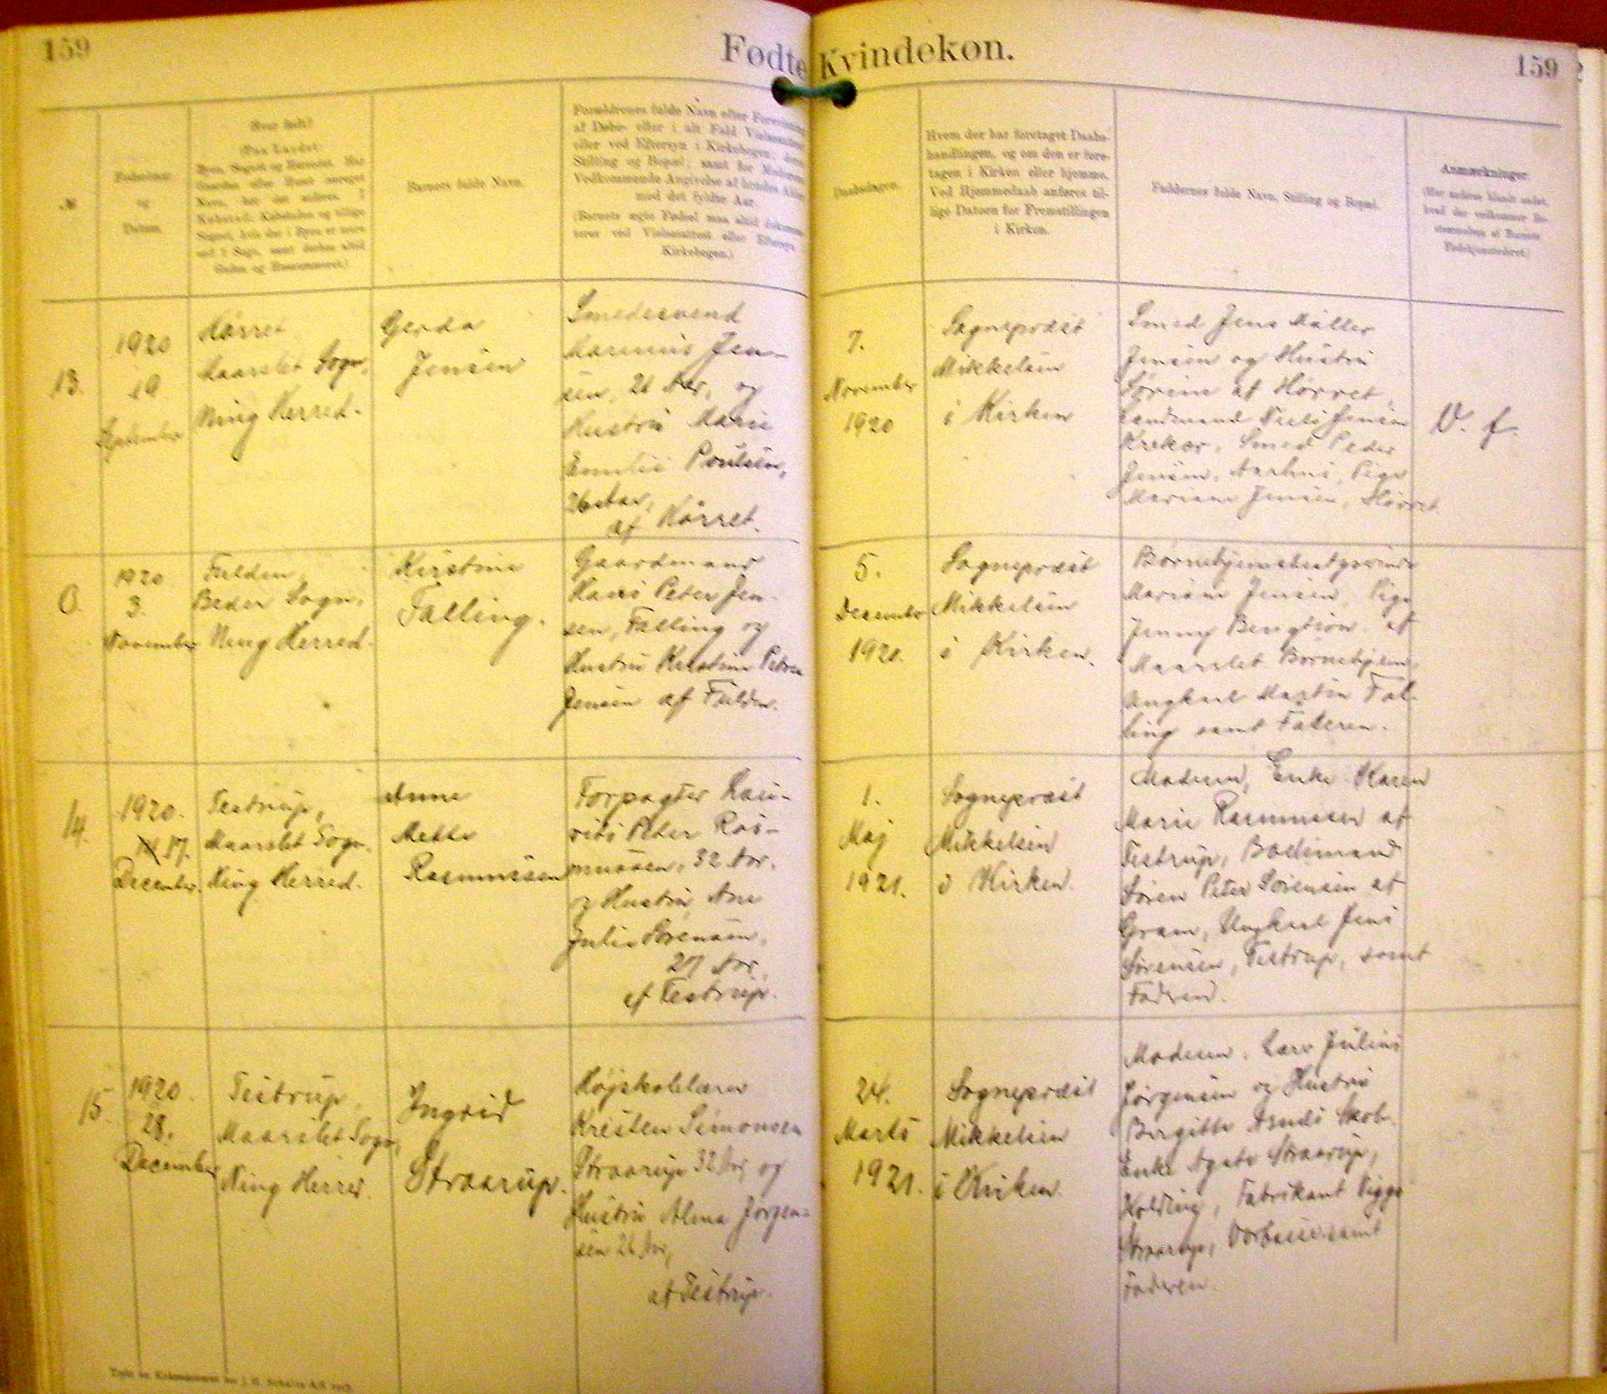 159
Fødte Kvindekøn.
159
№
Fødselsaar
og
Datum.
Hvor født?
(Paa Landet:
Byen, Sognet og Herredet. Har
Gaarden eller Huset noget
Navn, bør det anføres. I
Købstad: Købstaden og tillige
Sognet, hvis der i Byen er mere
end 1 Sogn, samt derhos altid
Gaden og Husnummeret.)
Barnets fulde Navn.
Forældrenes fulde Navn efter
af Døbe- eller i alt Fald
eller ved Eftersyn i Kirkebogen;
Stilling og Bopæl; samt for
Vedkommende Angivelse af hendes
med det fyldte Aar.
(Barnets ægte Fødsel maa altid
teres ved Vielsesattest eller
Kirkebogen.)
Daabsdagen.
Hvem der har foretaget Daabs-
handlingen, og om den er fore-
tagen i Kirken eller hjemme.
Ved Hjemmedaab anføres til-
lige Datoen for Fremstillingen
i Kirken.
Faddernes fulde Navn, Stilling og Bopæl.
Anmærkninger.
13.
1920
19
September
Hørret
Maarslet Sogn,
Ning Herred.
Gerda
Jensen
Smedesvend
Marinus Jen-
sen, 26 Aar, og
Hustru Marie
Emilie Poulsen,
26 Aar,
af Hørret.
7.
November
1920
Sognepræst
Mikkelsen
i Kirken
Smed Jens Møller
Jensen og Hustru
af Hørret,
Landmand Niels Jensen
Smed Peder
Jensen, Aarhus, Pige
Mariane Jensen, Hørret
V. f.
0.
1920
3.
November
Fulden,
Beder Sogn,
Ning Herred.
Kirstine
Falling.
Gaardmand
Hans Peter Jen-
sen, Falling og
Hustru Kirstine Petrea
Jensen af Fulden.
5.
December
1920.
Sognepræst
Mikkelsen
i Kirken.
Mariane Jensen, Pige
Jenny Bengtson af
Maarslet Børnehjem,
Ungkarl Martin Fal-
ling samt Faderen.
14.
1920.
17.
December.
Testrup,
Maarslet Sogn.
Ning Herred.
Anne
Mette
Rasmussen
Forpagter Lau-
rits Peter Ras-
mussen, 32 Aar.
og Hustru Ane
Julie Sørensen,
27 Aar,
af Testrup.
1.
Maj
1921.
Sognepræst
Mikkelsen
i Kirken.
Moderen, Enke Karen
Marie Rasmussen af
Testrup, Bødsmand
Søren Peter Sørensen af
Gram, Ungkarl Jens
Sørensen, Testrup, samt
Faderen.
15.
1920.
28.
December
Testrup,
Maarslet Sogn,
Ning Herred.
Ingrid
Straarup.
Højskolelærer
Kresten Simonsen
Straarup 32 Aar, og
Hustru Alma Jørgen-
sen 26 Aar,
af Testrup.
24.
Marts
1921.
Sognepræst
Mikkelsen
i Kirken.
Moderen, Lærer Julius
Jørgensen og Hustru
Birgitte
Enke Agate Straarup,
Kolding, Fabrikant Viggo
Straarup, Vorbasse samt
Faderen.